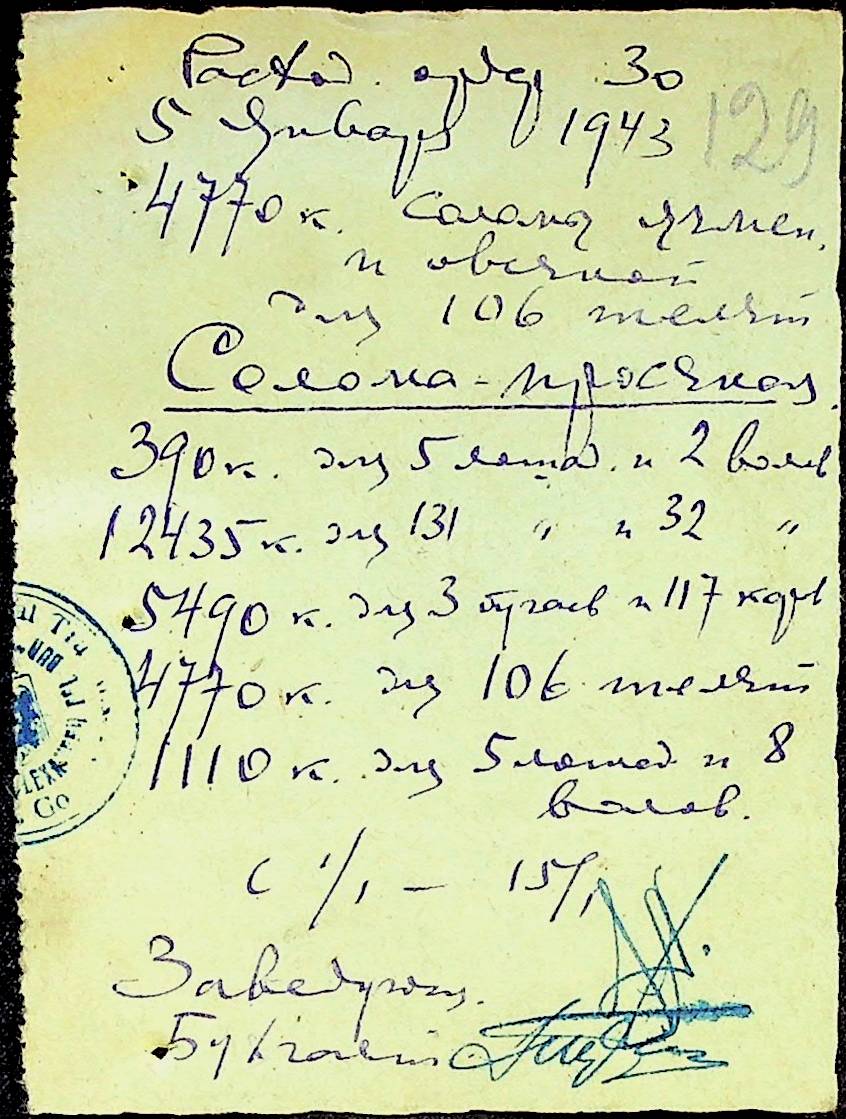 Расход. ордер 30
5 Января 1943
129
4770 к. Солома ячмен.
и овсяной
для 106 телят
Солома - просяная.
390 к. для 5 лошад. и 2 волов
12435 к. для 131 " и 32 "
5490 к. для 3 бугаев и 117 коров
4770 к. для 106 телят
1110 к. для 5 лошад и 8
волов.
с 1/1 — 15/1
Заведующ.
Бухгалт.
Go